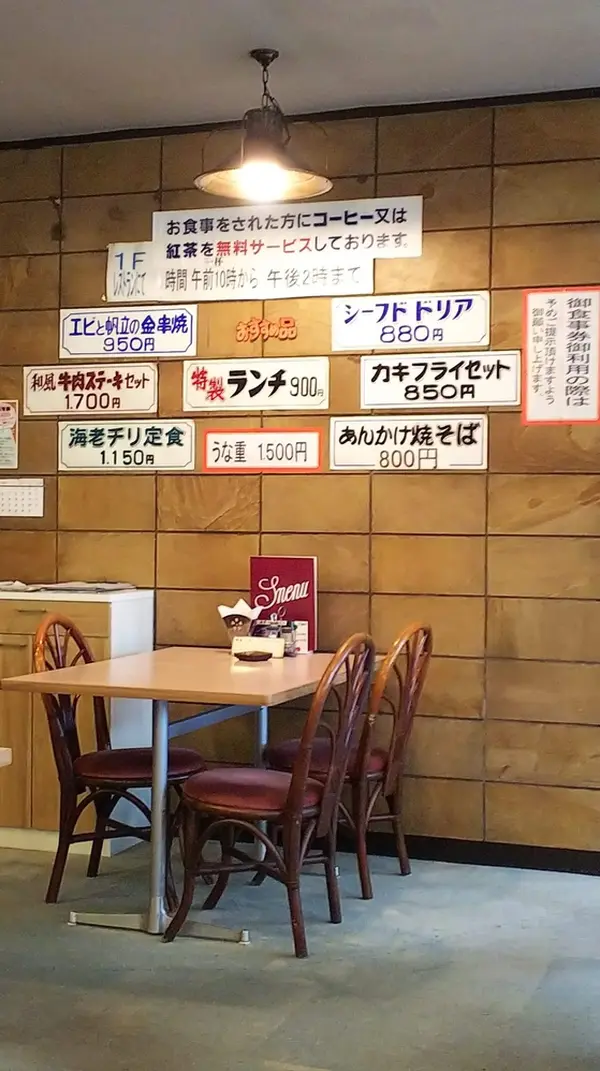 お食事をされた方にコーヒー又は
紅茶を無料サービスしております。
一杯
1F
レストランにて
時間 午前10時から 午後2時まで
エビと帆立の金串焼
950円
おすすめ品
シーフドドリア
880円
和風牛肉ステーキセット
1.700円
特製ランチ900円
カキフライセット
850円
海老チリ定食
1.150円
うな重 1.500円
あんかけ焼そば
800円
御食事券御利用の際は
予めご提示頂けますよう
御願い申し上げます。
menu